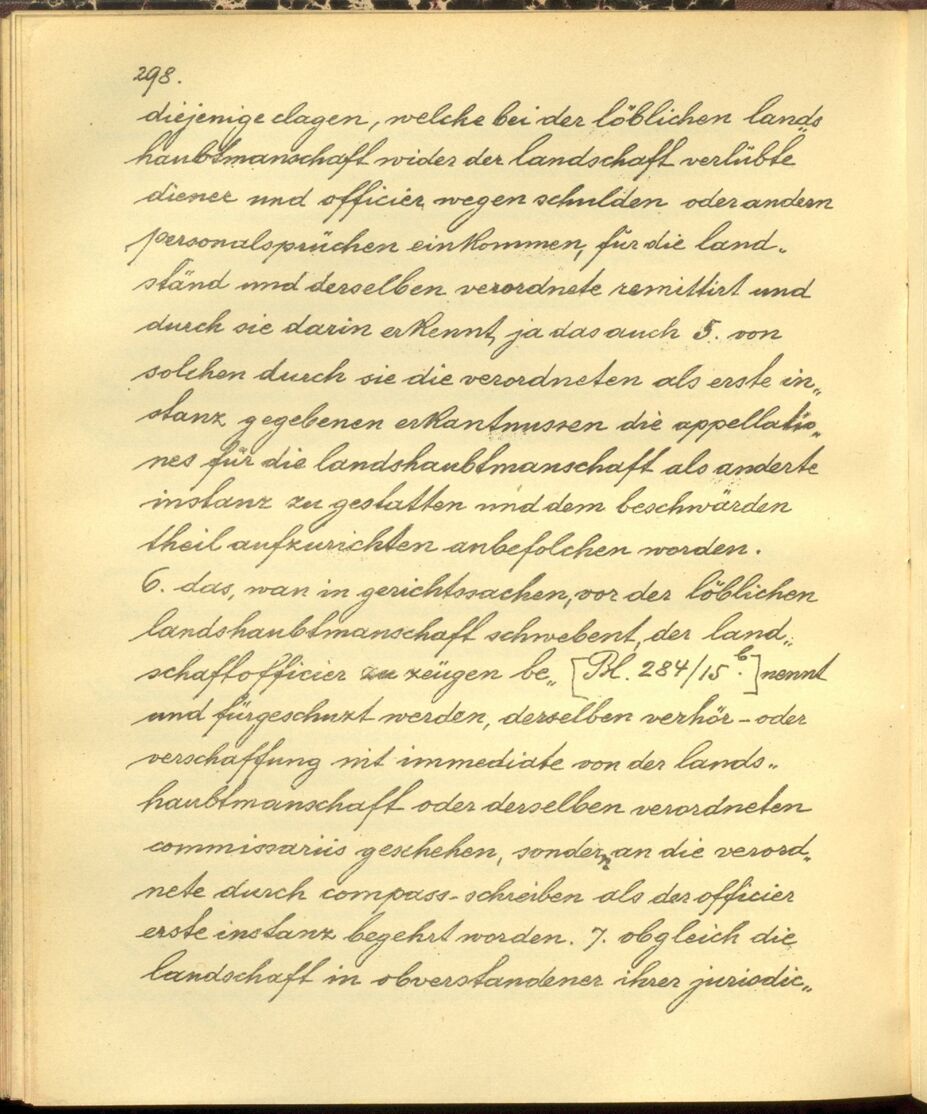 298.
diejenige clagen, welche bei der löblichen lands„
haubtmanschaft wider der landschaft verlübte
diener und officier wegen schulden oder andern
personalsprüchen einkommen, für die land„
ständ und derselben verordnete remittirt und
durch sie darin erkennt, ja das auch 5. von
solchen durch sie die verordneten als erste in„
stanz gegebenen erkantnussen die appellatio„
nes für die landshaubtmanschaft als anderte
instanz zu gestatten und dem beschwärden
theil aufzurichten anbefolchen worden.
6. das, wan in gerichtssachen, vor der löblichen
landshaubtmanschaft schwebent, der land„
schaftofficier zu zeügen be„ [Bl. 284/15 b.] nennt
und fürgeschuzt werden, derselben verhör- oder
verschaffung nit immediate von der lands„
haubtmanschaft oder derselben verordneten
commissariis geschehen, sondern an die verord„
nete durch compass-schreiben als der officier
erste instanz begehrt worden. 7. obgleich die
landschaft in obverstandener ihrer jurisdic„